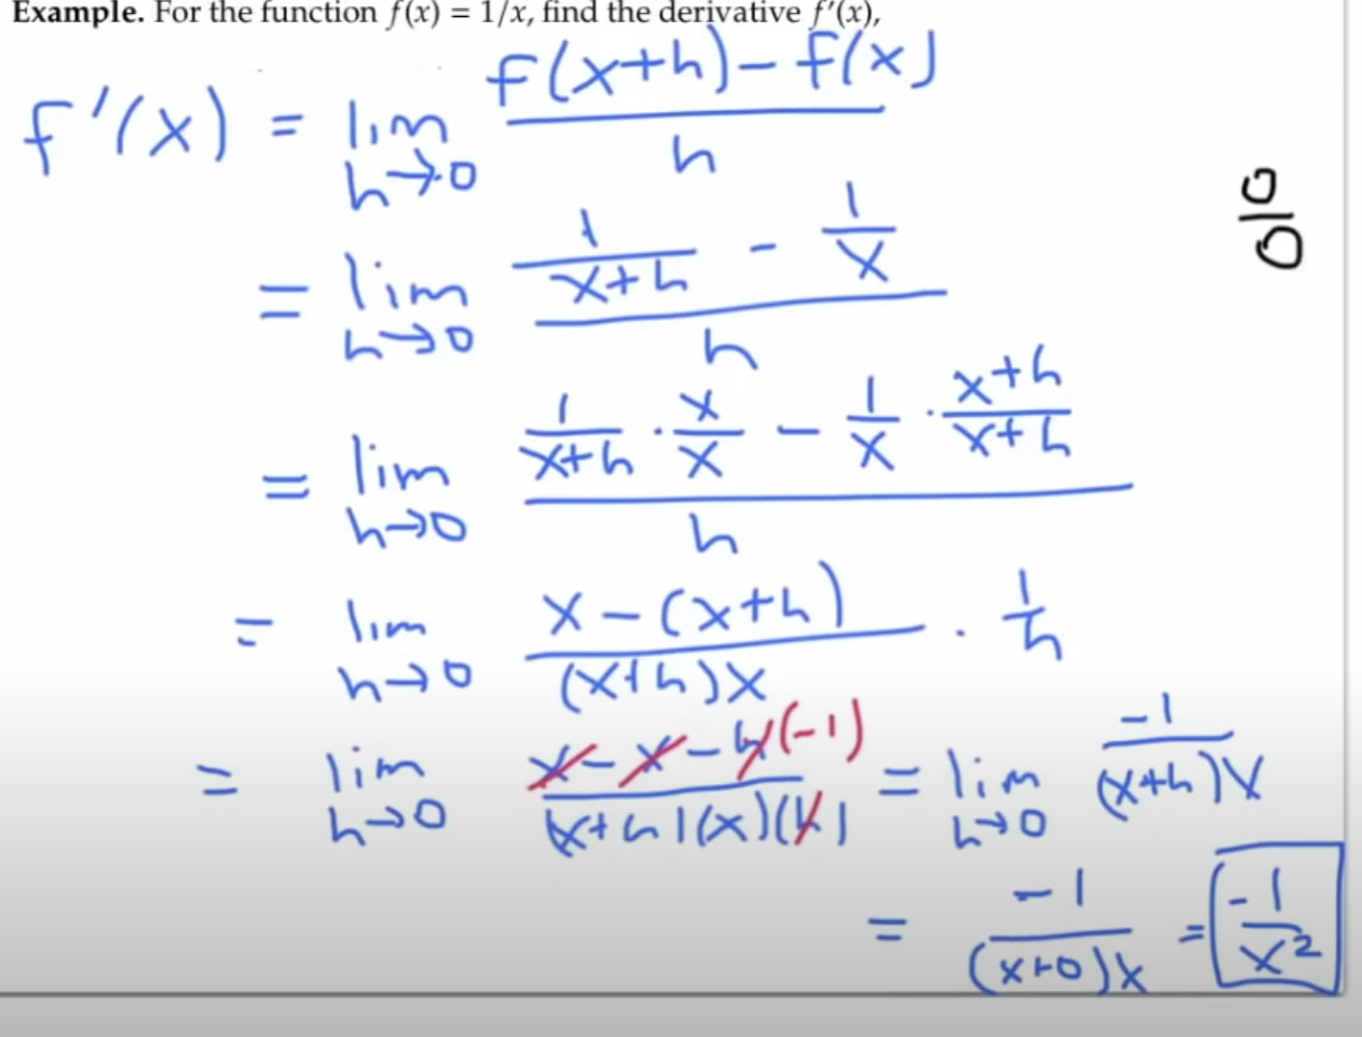 Example. For the function f(x) = 1/x, find the derivative f'(x),
f'(x) = lim h→0 (f(x+h) - f(x))/h
0/0
= lim h→0 (1/(x+h) - 1/x)/h
= lim h→0 (1/(x+h) · x/x - 1/x · (x+h)/(x+h))/h
= lim h→0 (x - (x+h))/((x+h)x) · 1/h
= lim h→0 (x - x - h(-1))/((x+h)(x)(h)) = lim h→0 -1/((x+h)x)
= -1/((x+0)x) = -1/x²